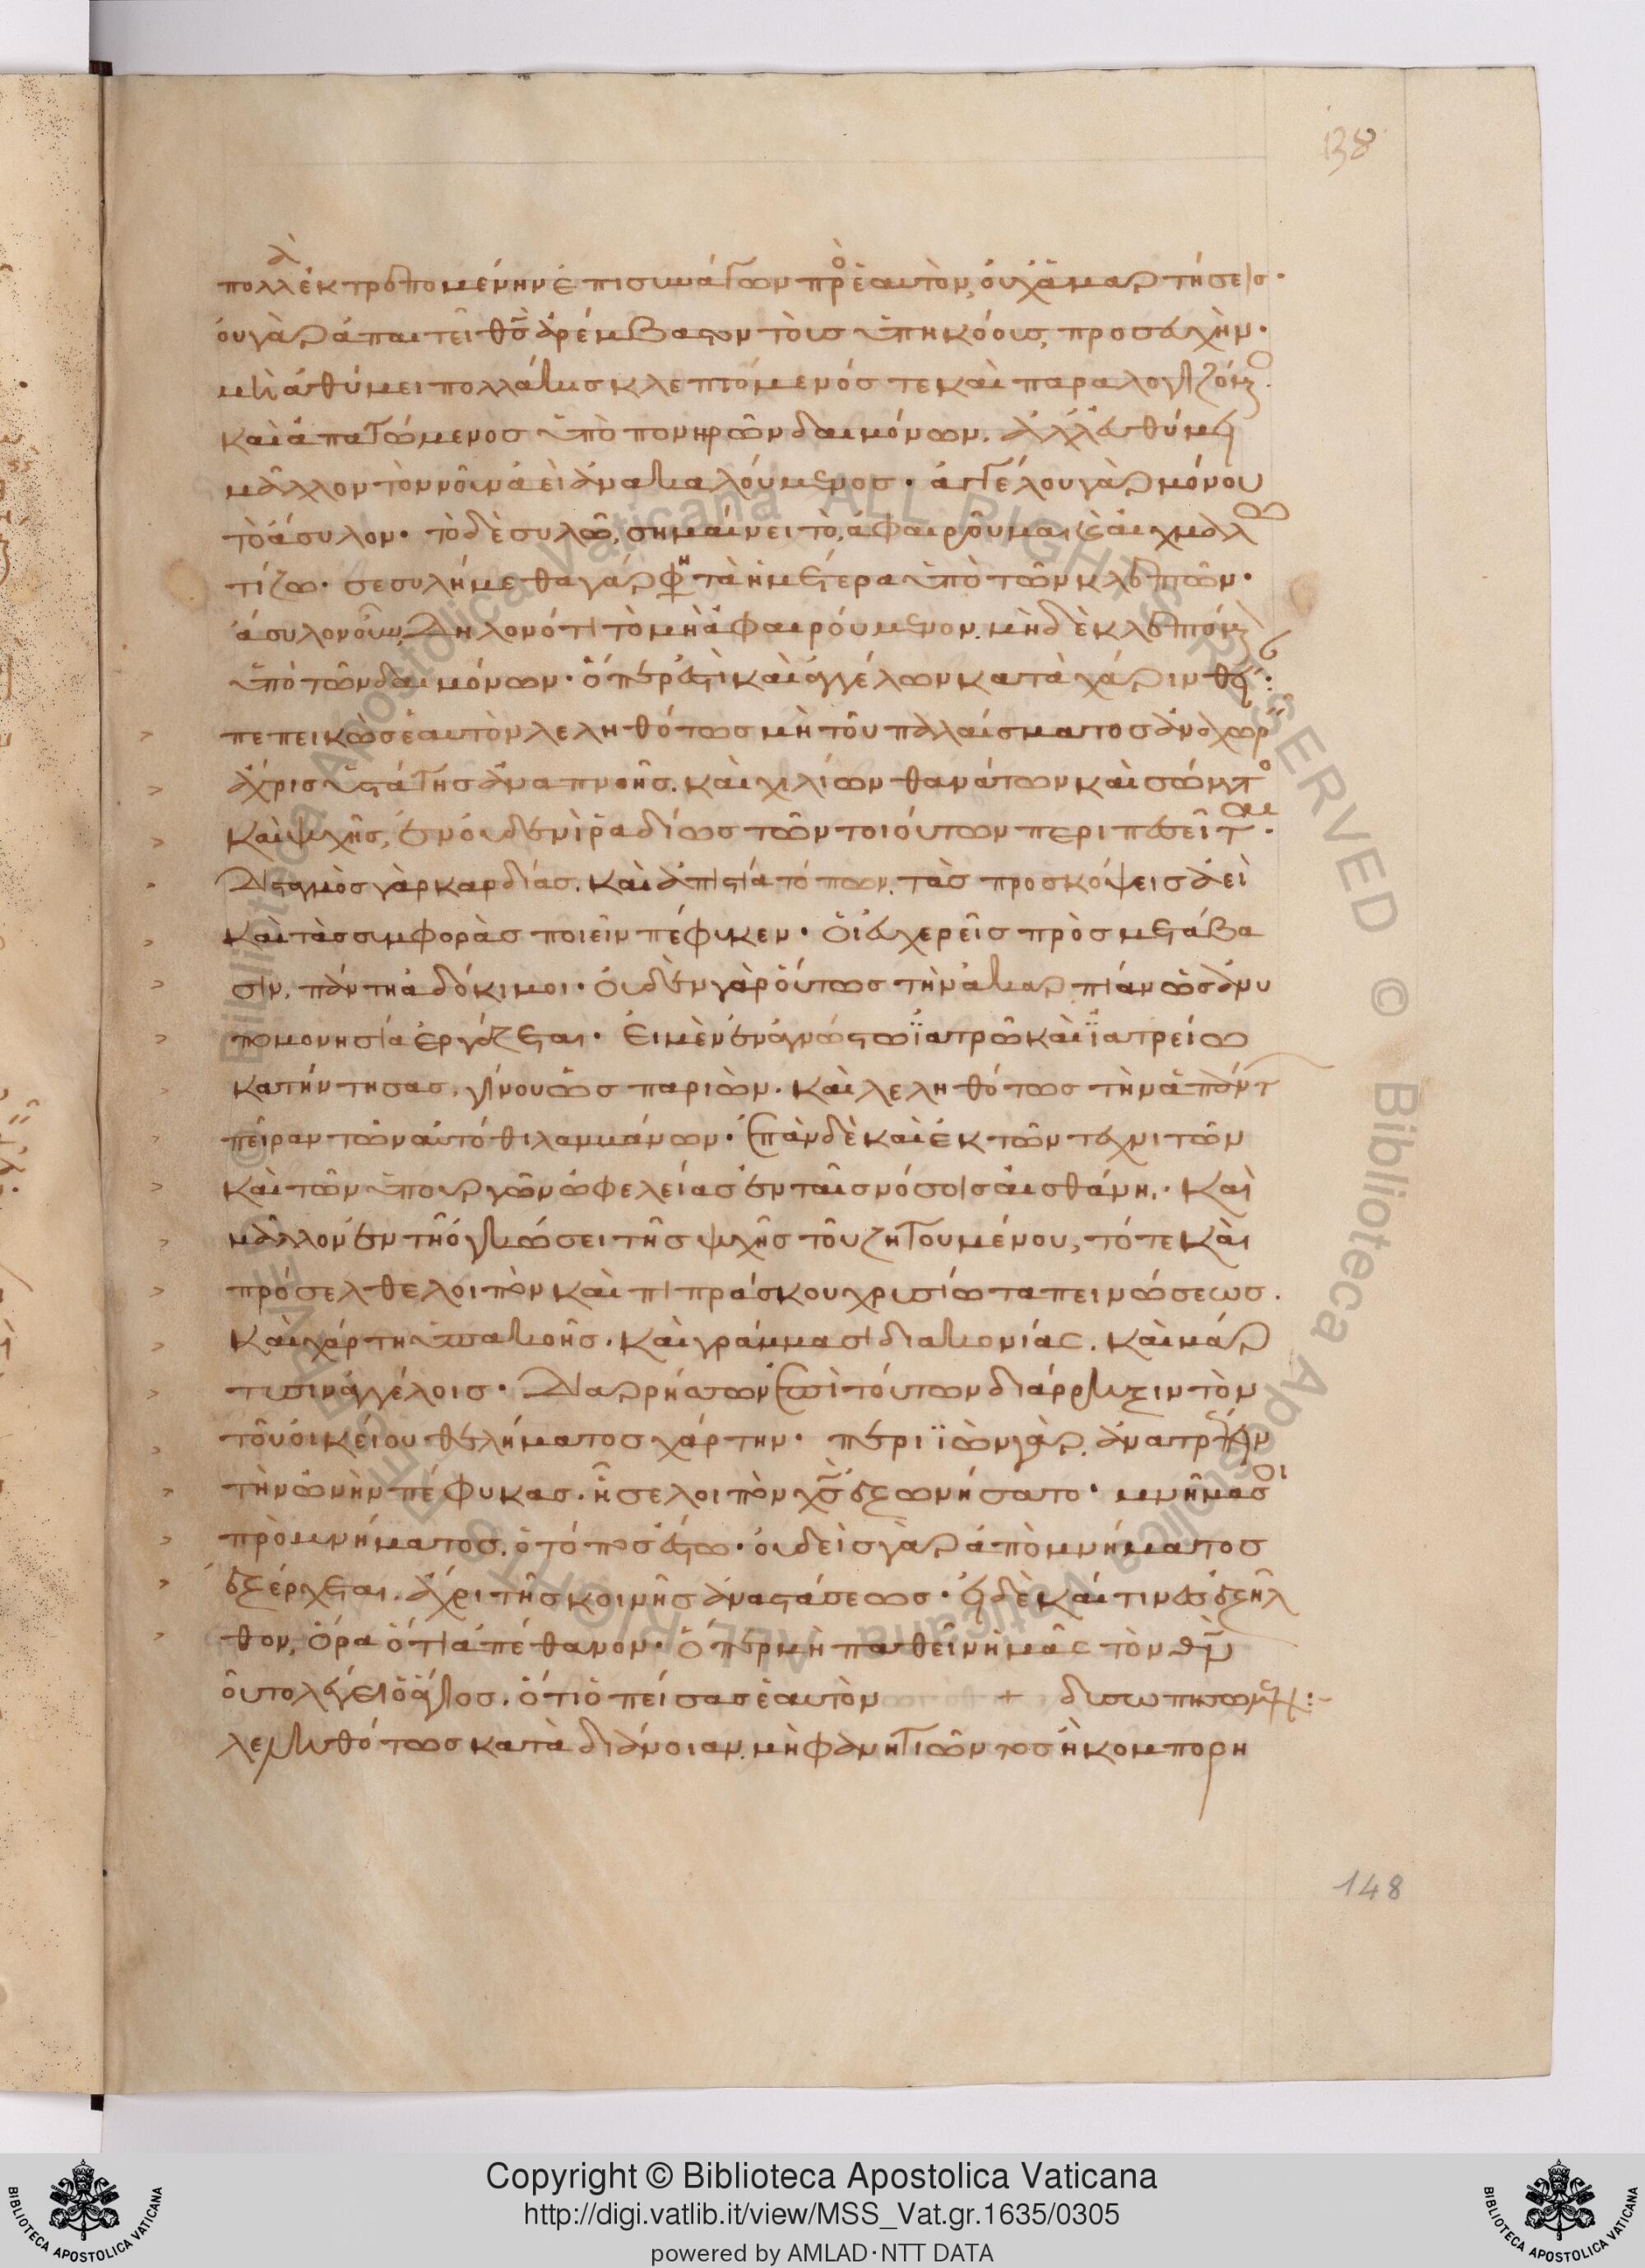 138
πολλὰ ἐκτρεπομένην ἐπισυνάγων πρὸ ἑαυτὸν, οὐχ ἁμαρτήσεισ·
οὐ γὰρ ἀπαιτεῖ θσ ἀρέμβαστον τοῖσ ὑπηκόοισ, προσευχήν·
μὴ ἀθύμει πολλάκισ κλεπτόμενόσ τε καὶ παραλογιζόμο·
καὶ ἀπατώμενοσ ὑπὸ πονηρῶν δαιμόνων. ἀλλ' εὐθύμει
μᾶλλον τὸν νοῦν ἀεὶ ἀνακαλούμενοσ· ἀγγέλου γὰρ μόνου
τὸ ἄσυλον· τὸ δὲ συλῶ, σημαίνει τὸ, ἀφαιροῦμαι καὶ αἰχμαλω
τίζω· σεσυλήμεθα γάρ φη τὰ ἡμέτερα ὑπὸ τῶν κλεπτῶν·
ἄσυλον οὖν, δηλονότι τὸ μὴ ἀφαιρούμενον. μηδὲ κλεπτόμ
ὑπὸ τῶν δαιμόνων· ὅπερ ἐστὶ καὶ ἀγγέλων κατὰ χάριν θυ:
πεπεικὼσ ἑαυτὸν λεληθότωσ μὴ τοῦ παλαίσματοσ ἀναχωρ
ἄχρισ ὑστάτησ ἀναπνοῆσ. καὶ χιλίων θανάτων καὶ σώματο
καὶ ψυχῆσ, ἐν οὐδενὶ ῥαδίωσ τῶν τοιούτων περιπεσεῖται·
δισταγμὸσ γὰρ καρδίασ. καὶ ἀπιστία τόπων. τὰσ προσκόψεισ ἀεὶ
καὶ τὰσ συμφορὰσ ποιεῖν πέφυκεν· οἱ εὐχερεῖσ πρὸσ μετάβα
σιν, πάντη ἀδόκιμοι· οὐδὲν γὰρ οὕτωσ τὴν ἀκαρπίαν ὡσ ἀνυ
πομονησία ἐργάζεται· εἰ μὲν ἐν ἀγνώστω ϊατρῶ καὶ ϊατρείω
κατήντησασ. γίνου ὡσ παριὼν. καὶ λεληθότωσ τὴν ἁπάντ
πεῖραν τῶν αὐτόθι λαμμάνων· ἐπὰν δὲ καὶ ἐκ τῶν τεχνιτῶν
καὶ τῶν ὑπουργῶν ὠφελείασ ἐν ταῖσ νόσοισ αἰσθάνη,· καὶ
μᾶλλον ἐν τῆ ὀγκώσει τῆσ ψυχῆσ τοῦ ζητουμένου, τότε καὶ
πρόσελθε λοιπὸν καὶ πιπράσκου χρυσίω ταπεινώσεωσ.
καὶ χάρτη ὑπακοῆσ. καὶ γράμμασι διακονίασ. καὶ μάρ
τυσιν ἀγγέλοισ· διαρρήσσων ἐπὶ τούτων διάρρηξιν τὸν
τοῦ οἰκείου θελήματοσ χάρτην· περιϊὼν γὰρ, ἀνατρέπειν
τὴν ὠνὴν πέφυκασ. ἥν σε λοιπὸν χσ ἐξωνήσατο· μνῆμά σοι
πρὸ μνήματοσ, ὁ τόποσ ἔστω· οὐδεὶσ γὰρ ἀπὸ μνήματοσ
ἐξέρχεται. ἄχρι τῆσ κοινῆσ ἀναστάσεωσ· εἰ δὲ καί τινεσ ἐξῆλ
θον, ὅρα ὅτι ἀπέθανον· ὅπερ μὴ παθεῖν ἡμᾶσ τὸν
οὕτο λέγει ὁ ἅγιοσ, ὅτι ὁ πείσασ ἑαυτὸν + δυσωπήσωμεν:
λεληθότωσ κατὰ διάνοιαν. μὴ φανητιῶντοσ ἢ κομπορη
148
Copyright © Biblioteca Apostolica Vaticana
http://digi.vatlib.it/view/MSS_Vat.gr.1635/0305
powered by AMLAD·NTT DATA
BIBLIOTECA APOSTOLICA VATICANA
BIBLIOTECA APOSTOLICA VATICANA